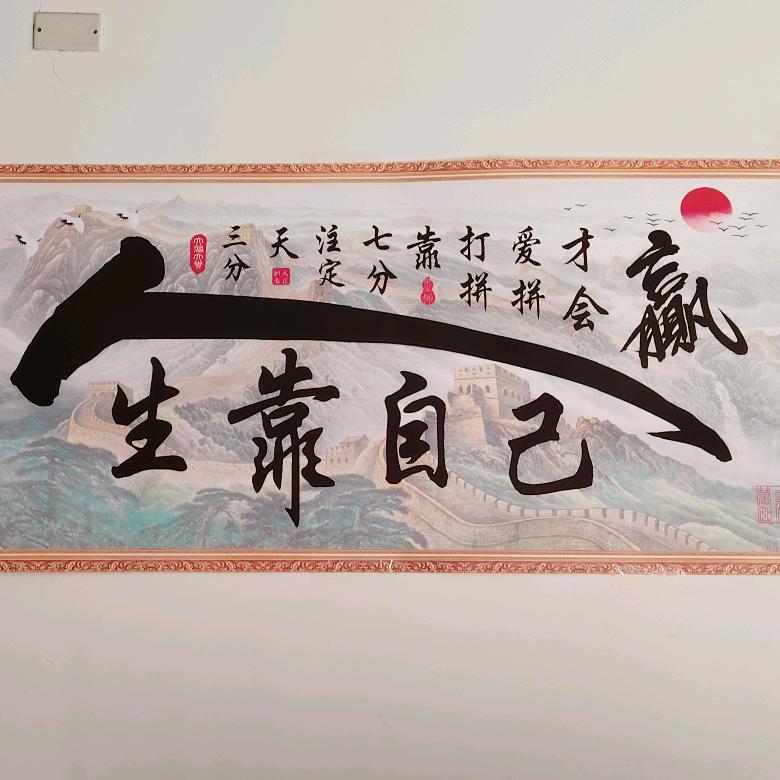 人生靠自己
三分
天
注定
七分
靠
打拼
爱拼
才会
赢